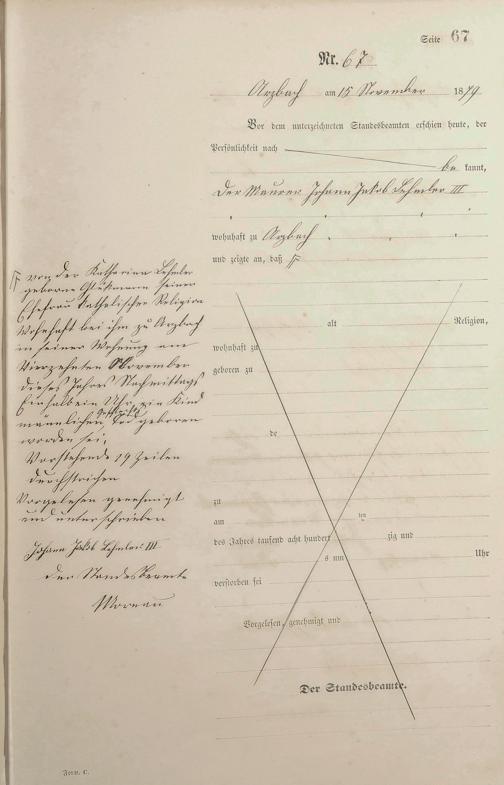 Seite 67
Nr. 67
Arzbach am 15 November 1879
Vor dem unterzeichneten Standesbeamten erschien heute, der
Persönlichkeit nach
be kannt,
der Maurer Johann Jakob Lehmler III
wohnhaft zu Arzbach
und zeigte an, daß
von der Katharina Lehmler
geborne seiner
Ehefrau katholischer Religion
Wohnhaft bei ihm zu Arzbach
in seiner Wohnung am
Vierzehnten November
dieses Jahres Nachmittags
Uhr, ein Kind
männlichen Geschlechts Tod geboren
worden sei,
Vorstehende 19 Zeilen
durchstrichen
Vorgelesen genehmigt
und unterschrieben
Johann Jakob Lehmler III
Der Standesbeamte
Moreau
alt Religion,
wohnhaft zu
geboren zu
de
zu
am ten
des Jahres tausend acht hundert zig und
s um Uhr
verstorben sei
Vorgelesen, genehmigt und
Der Standesbeamte.
Form. C.